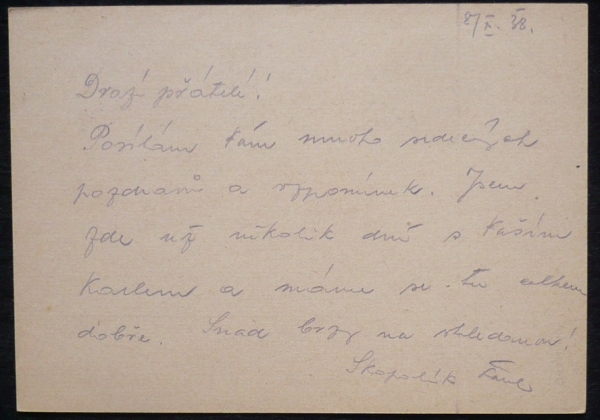 8/X. 38.
Drazí přátelé!
Posílám Vám mnoho srdečných
pozdravů a vzpomínek. Jsem
zde už několik dnů s Vaším
Karlem a máme se tu celkem
dobře. Snad brzy na shledanou!
Skopalík Karel